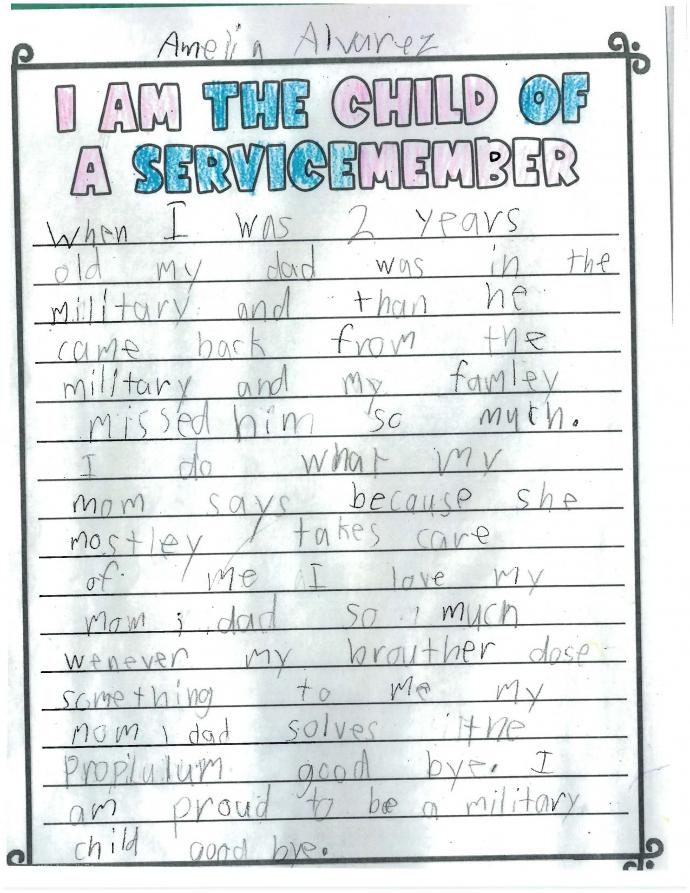 Amelia Alvarez
I AM THE CHILD OF
A SERVICEMEMBER
When I was 2 years
old my dad was in the
military and than he
came back from the
military and my famley
missed him so much.
I do what my
mom says because she
mostley takes care
of me I love my
mom i dad so much
wenever my brouther dose
something to me my
mom i dad solves the
Propilulum good bye. I
am proud to be a military
child good bye.